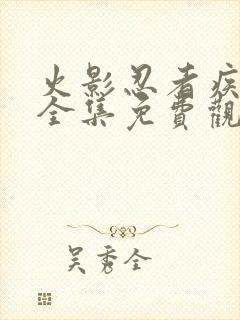 火影忍者疾
全集免費觀
吳秀全